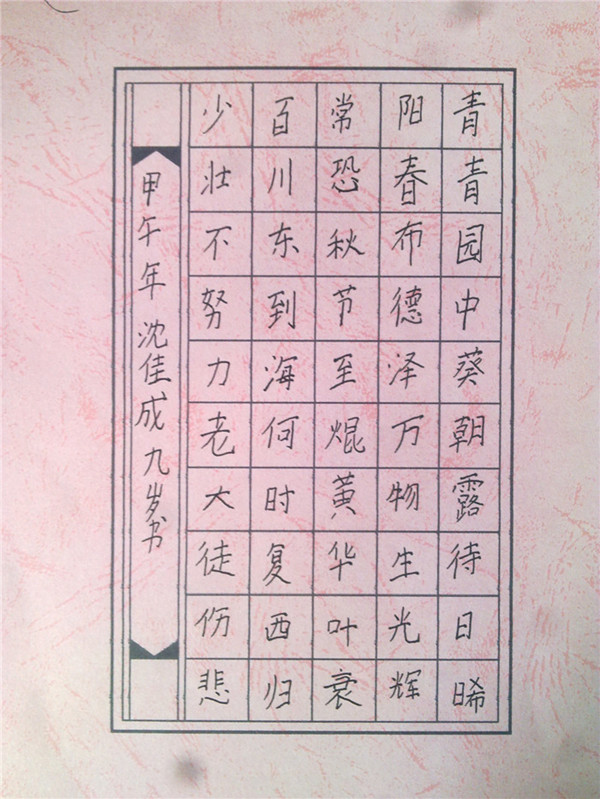 青青园中葵朝露待日晞
阳春布德泽万物生光辉
常恐秋节至焜黄华叶衰
百川东到海何时复西归
少壮不努力老大徒伤悲
甲午年沈佳成九岁书